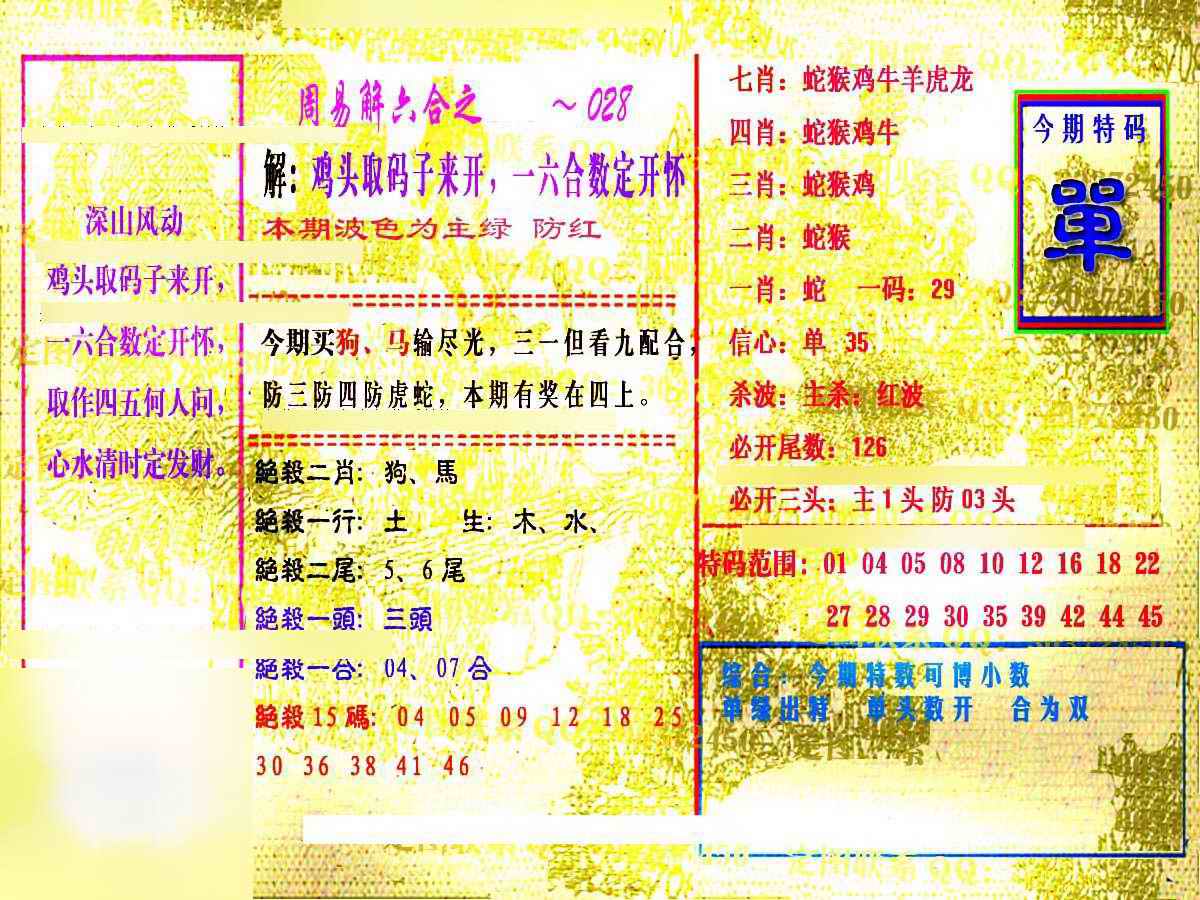 周易解六合之 ～028
解：鸡头取码子来开，一六合数定开怀
本期波色为主绿 防红
深山风动
鸡头取码子来开，
一六合数定开怀，
取作四五何人问，
心水清时定发财。
今期买狗、马输尽光，三一但看九配合，
防三防四防虎蛇，本期有奖在四上。
絕殺二肖：狗、馬
絕殺一行：土 生：木、水、
絕殺二尾：5、6尾
絕殺一頭：三頭
絕殺一合：04、07合
絕殺15碼：04 05 09 12 18 25
30 36 38 41 46
七肖：蛇猴鸡牛羊虎龙
四肖：蛇猴鸡牛
三肖：蛇猴鸡
二肖：蛇猴
一肖：蛇 一码：29
信心：单 35
杀波：主杀：红波
必开尾数：126
必开三头：主1头防03头
今期特码
單
特码范围：01 04 05 08 10 12 16 18 22
27 28 29 30 35 39 42 44 45
综合：今期特数可博小数
单缘出特 单头数开 合为双